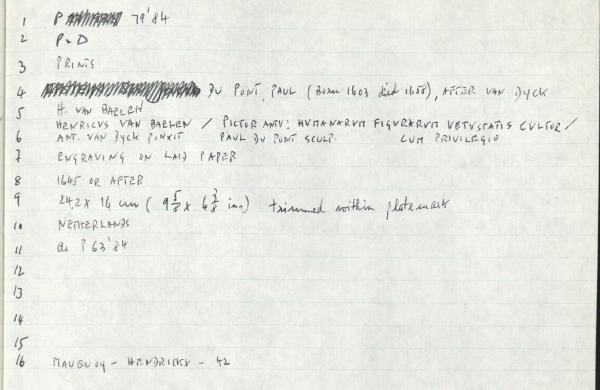 1 P 79'84
2 P&D
3 PRINTS
4 DU PONT, PAUL (Born 1603 died 1658), AFTER VAN DYCK
5 H. VAN BAELEN
HENRICVS VAN BAELEN / PICTOR ANTV: HVMANARVM FIGVRARVM VETVSTATIS CVLTOR /
6 ANT. VAN DYCK PINXIT PAUL DU PONT SCULP. CUM PRIVILEGIO
7 ENGRAVING ON LAID PAPER
8 1645 OR AFTER
9 24.2 x 16 cm ( 9 5/8 x 6 3/8 ins) trimmed within platemark
10 NETHERLANDS
11 As P 63'84
12
13
14
15
16 MAUQUOY-HENDRICKX - 42